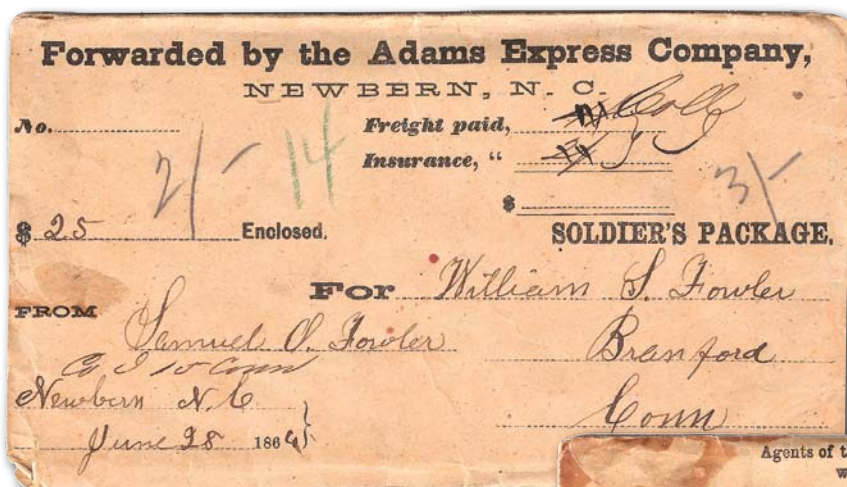 Forwarded by the Adams Express Company,
NEWBERN, N. C.
No.
Freight paid, Coll
Insurance, "
2/- 14
3/-
$
$ 25 Enclosed.
SOLDIER'S PACKAGE.
For William S. Fowler
FROM
Samuel O. Fowler
Branford
Co I 15 Conn
Newbern N.C
Conn
June 28 1864
Agents of t
w